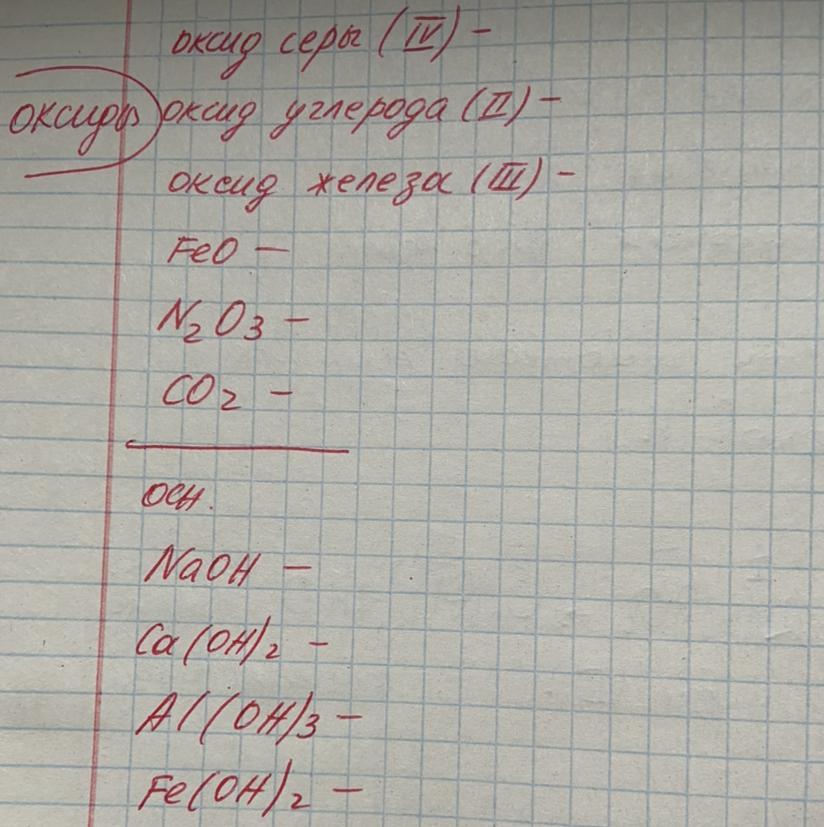 оксид серы (IV) -
оксиды
оксид углерода (II) -
оксид железа (III) -
FeO -
N₂O₃ -
CO₂ -
осн.
NaOH -
Ca(OH)₂ -
Al(OH)₃ -
Fe(OH)₂ -